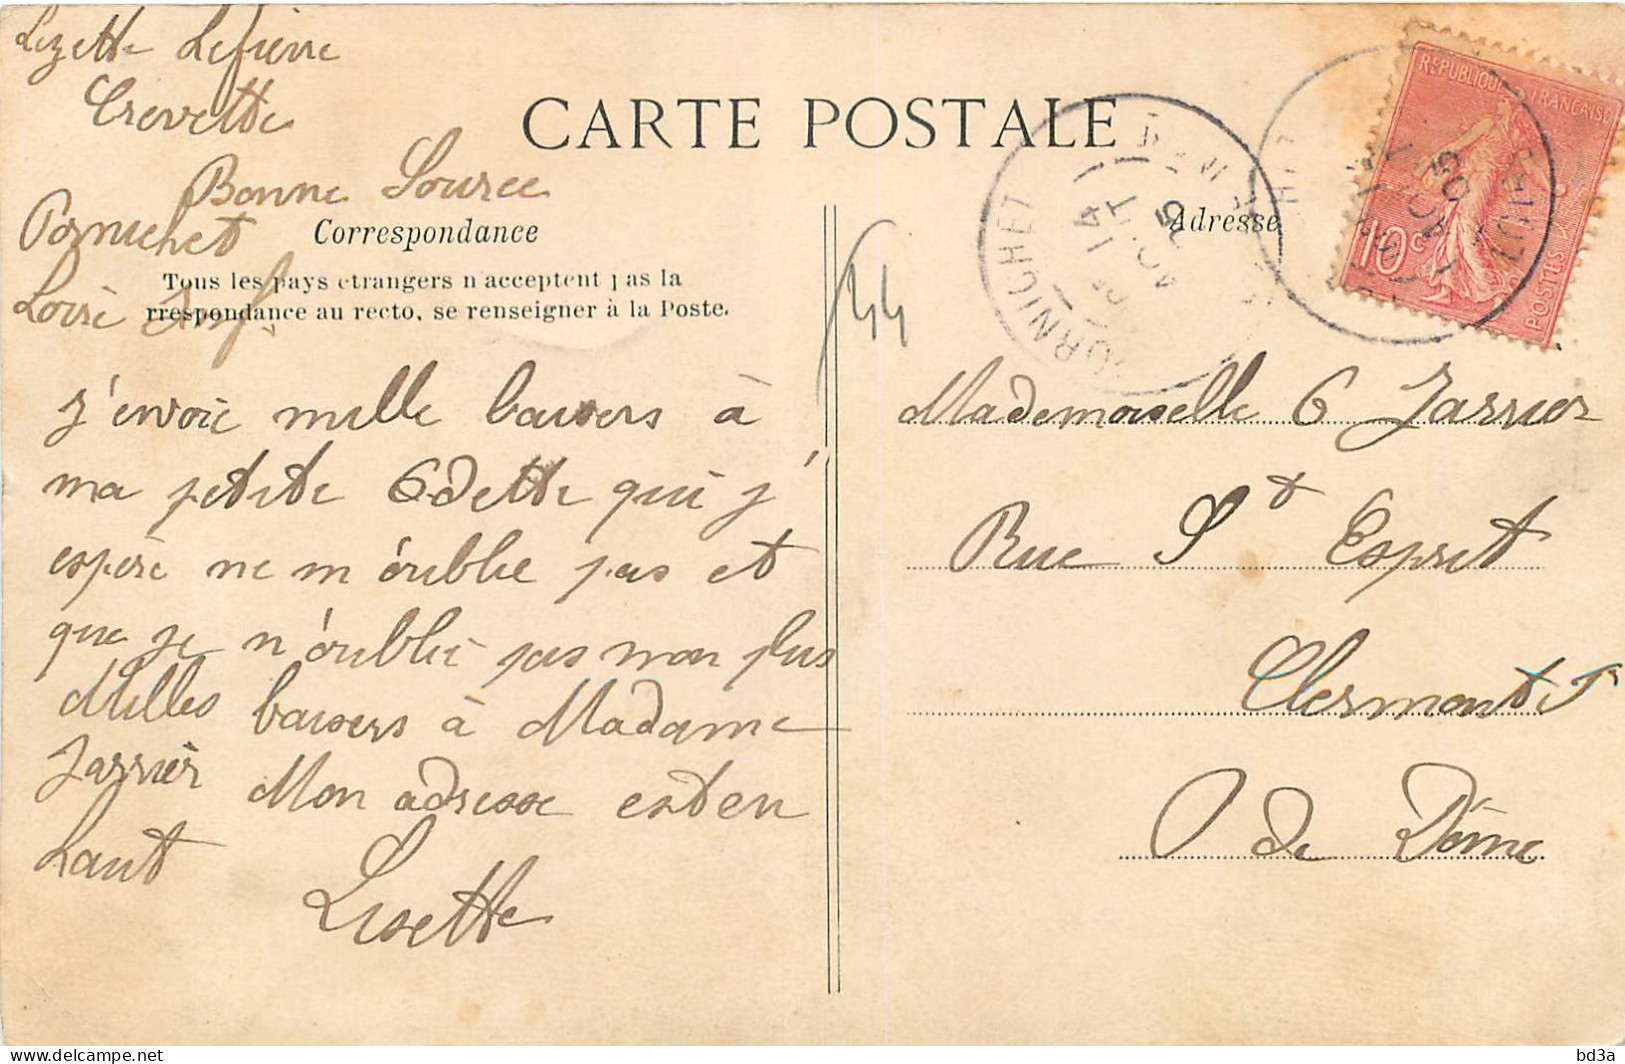 Lizette Lefierre
Crevette
Bonne Source
Pornichet
Loire Inf.
CARTE POSTALE
Correspondance
Tous les pays étrangers n'acceptent pas la
rrespondance au recto, se renseigner à la Poste.
J'envoie mille baisers à
ma petite Odette qui j'
espère ne m'oublie pas et
que je n'oublie pas non plus
Milles baisers à Madame
Jarrier Mon adresse est en
haut Lisette
44
PORNICHET
14
AOUT
05
Adresse
REPUBLIQUE FRANCAISE
10c
POSTES
05
Mademoiselle O Jarrier
Rue St Esprit
Clermont F
P de Dôme
bd3a
delcampe.net